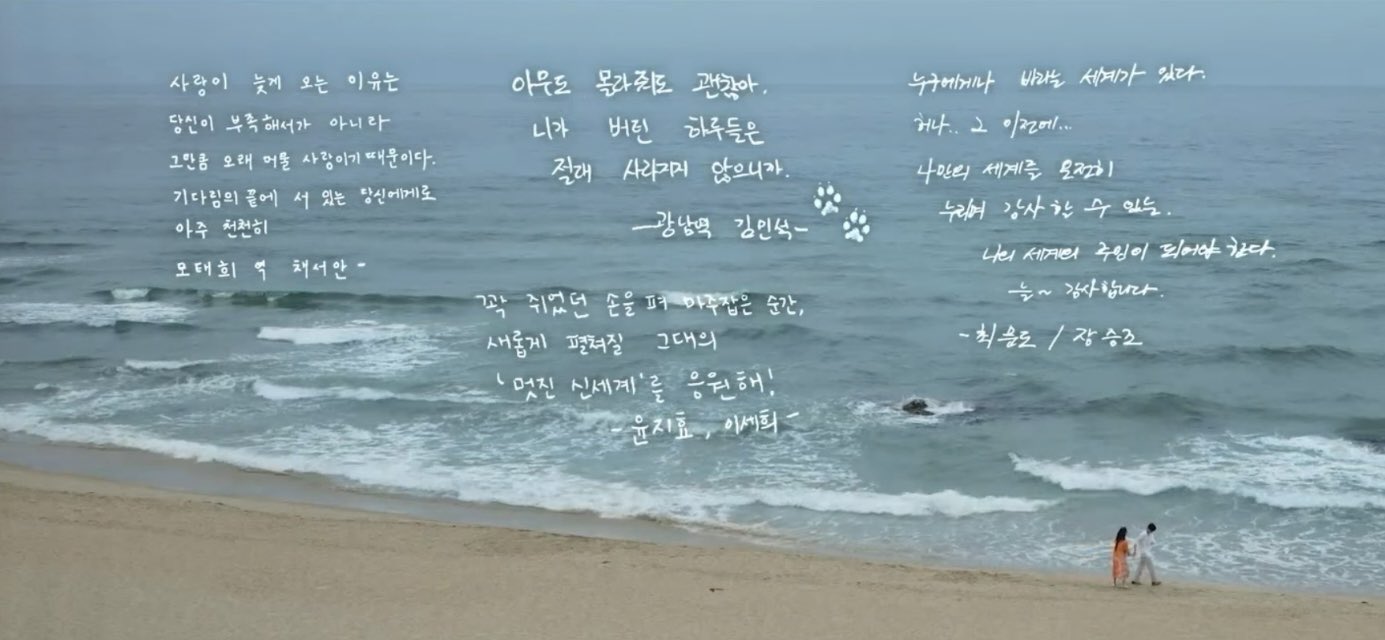 사랑이 늦게 오는 이유는
당신이 부족해서가 아니라
그만큼 오래 머물 사랑이기 때문이다.
기다림의 끝에 서 있는 당신에게로
아주 천천히
모태희 역 채서안-
아무도 몰라줘도 괜찮아.
니가 버틴 하루들은
절대 사라지지 않으니까.
-광남역 김민석-
꽉 쥐었던 손을 펴 마주잡은 순간,
새롭게 펼쳐질 그대의
'멋진 신세계'를 응원해!
- 윤지효, 이세희 -
누구에게나 바라는 세계가 있다.
허나.. 그 이전에...
나만의 세계를 온전히
누리며 감사 할 수 있는.
나의 세계의 주인이 되어야 한다.
늘~ 감사합니다.
- 최문도 / 장승조